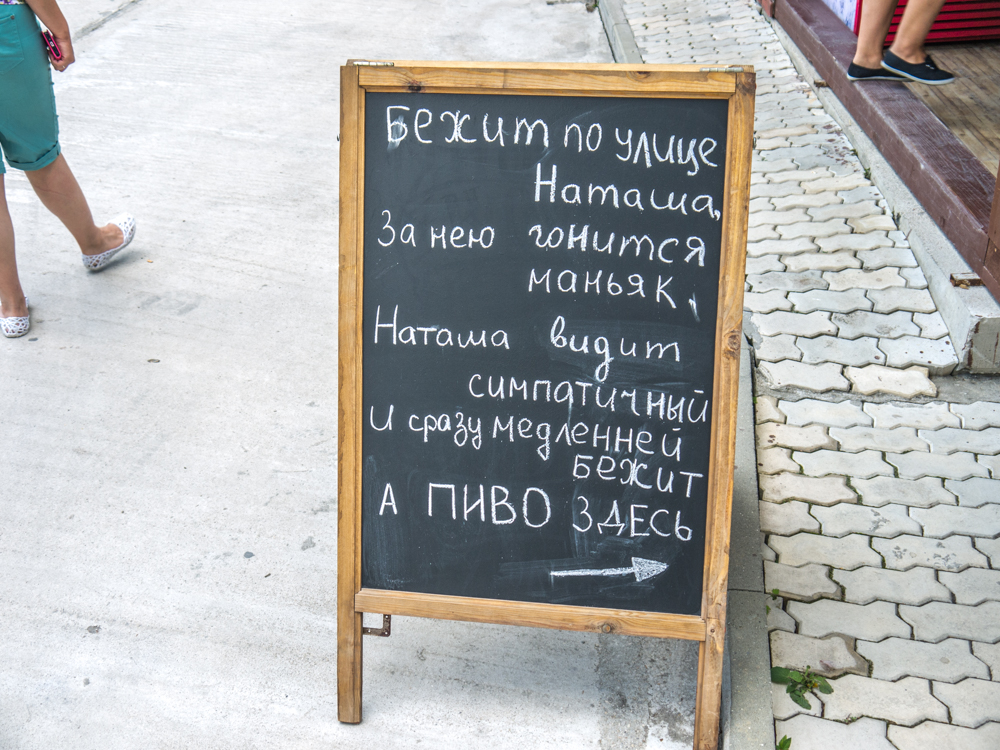 Бежит по улице
Наташа,
За нею гонится
маньяк,
Наташа видит
симпатичный
И сразу медленней
БЕЖИТ
А ПИВО ЗДЕСЬ